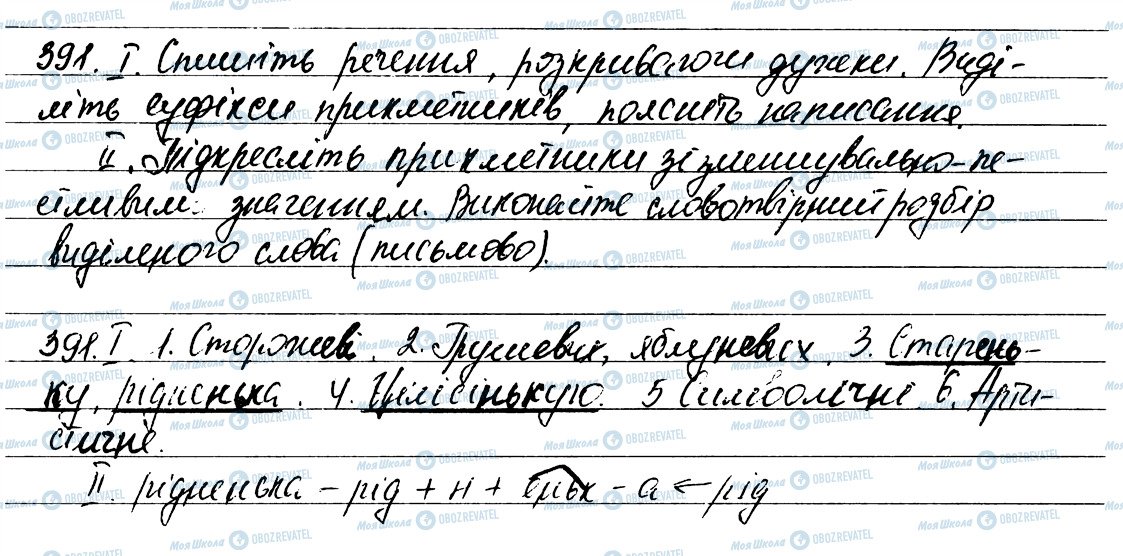 391. I. Спишіть речення, розкриваючи дужки. Виді-
літь суфікси прикметників, поясніть написання.
II. Підкресліть прикметники зі зменшувально-пе-
стливим значенням. Виконайте словотвірний розбір
виділеного слова (письмово).
391. I. 1. Сторожеві. 2. Грушевих, яблуневих 3. Старень-
ку, рідненька. 4. Цілісінькую. 5 Символічні 6. Арти-
стичне.
II. рідненька – рід + н + еньк – а ← рід